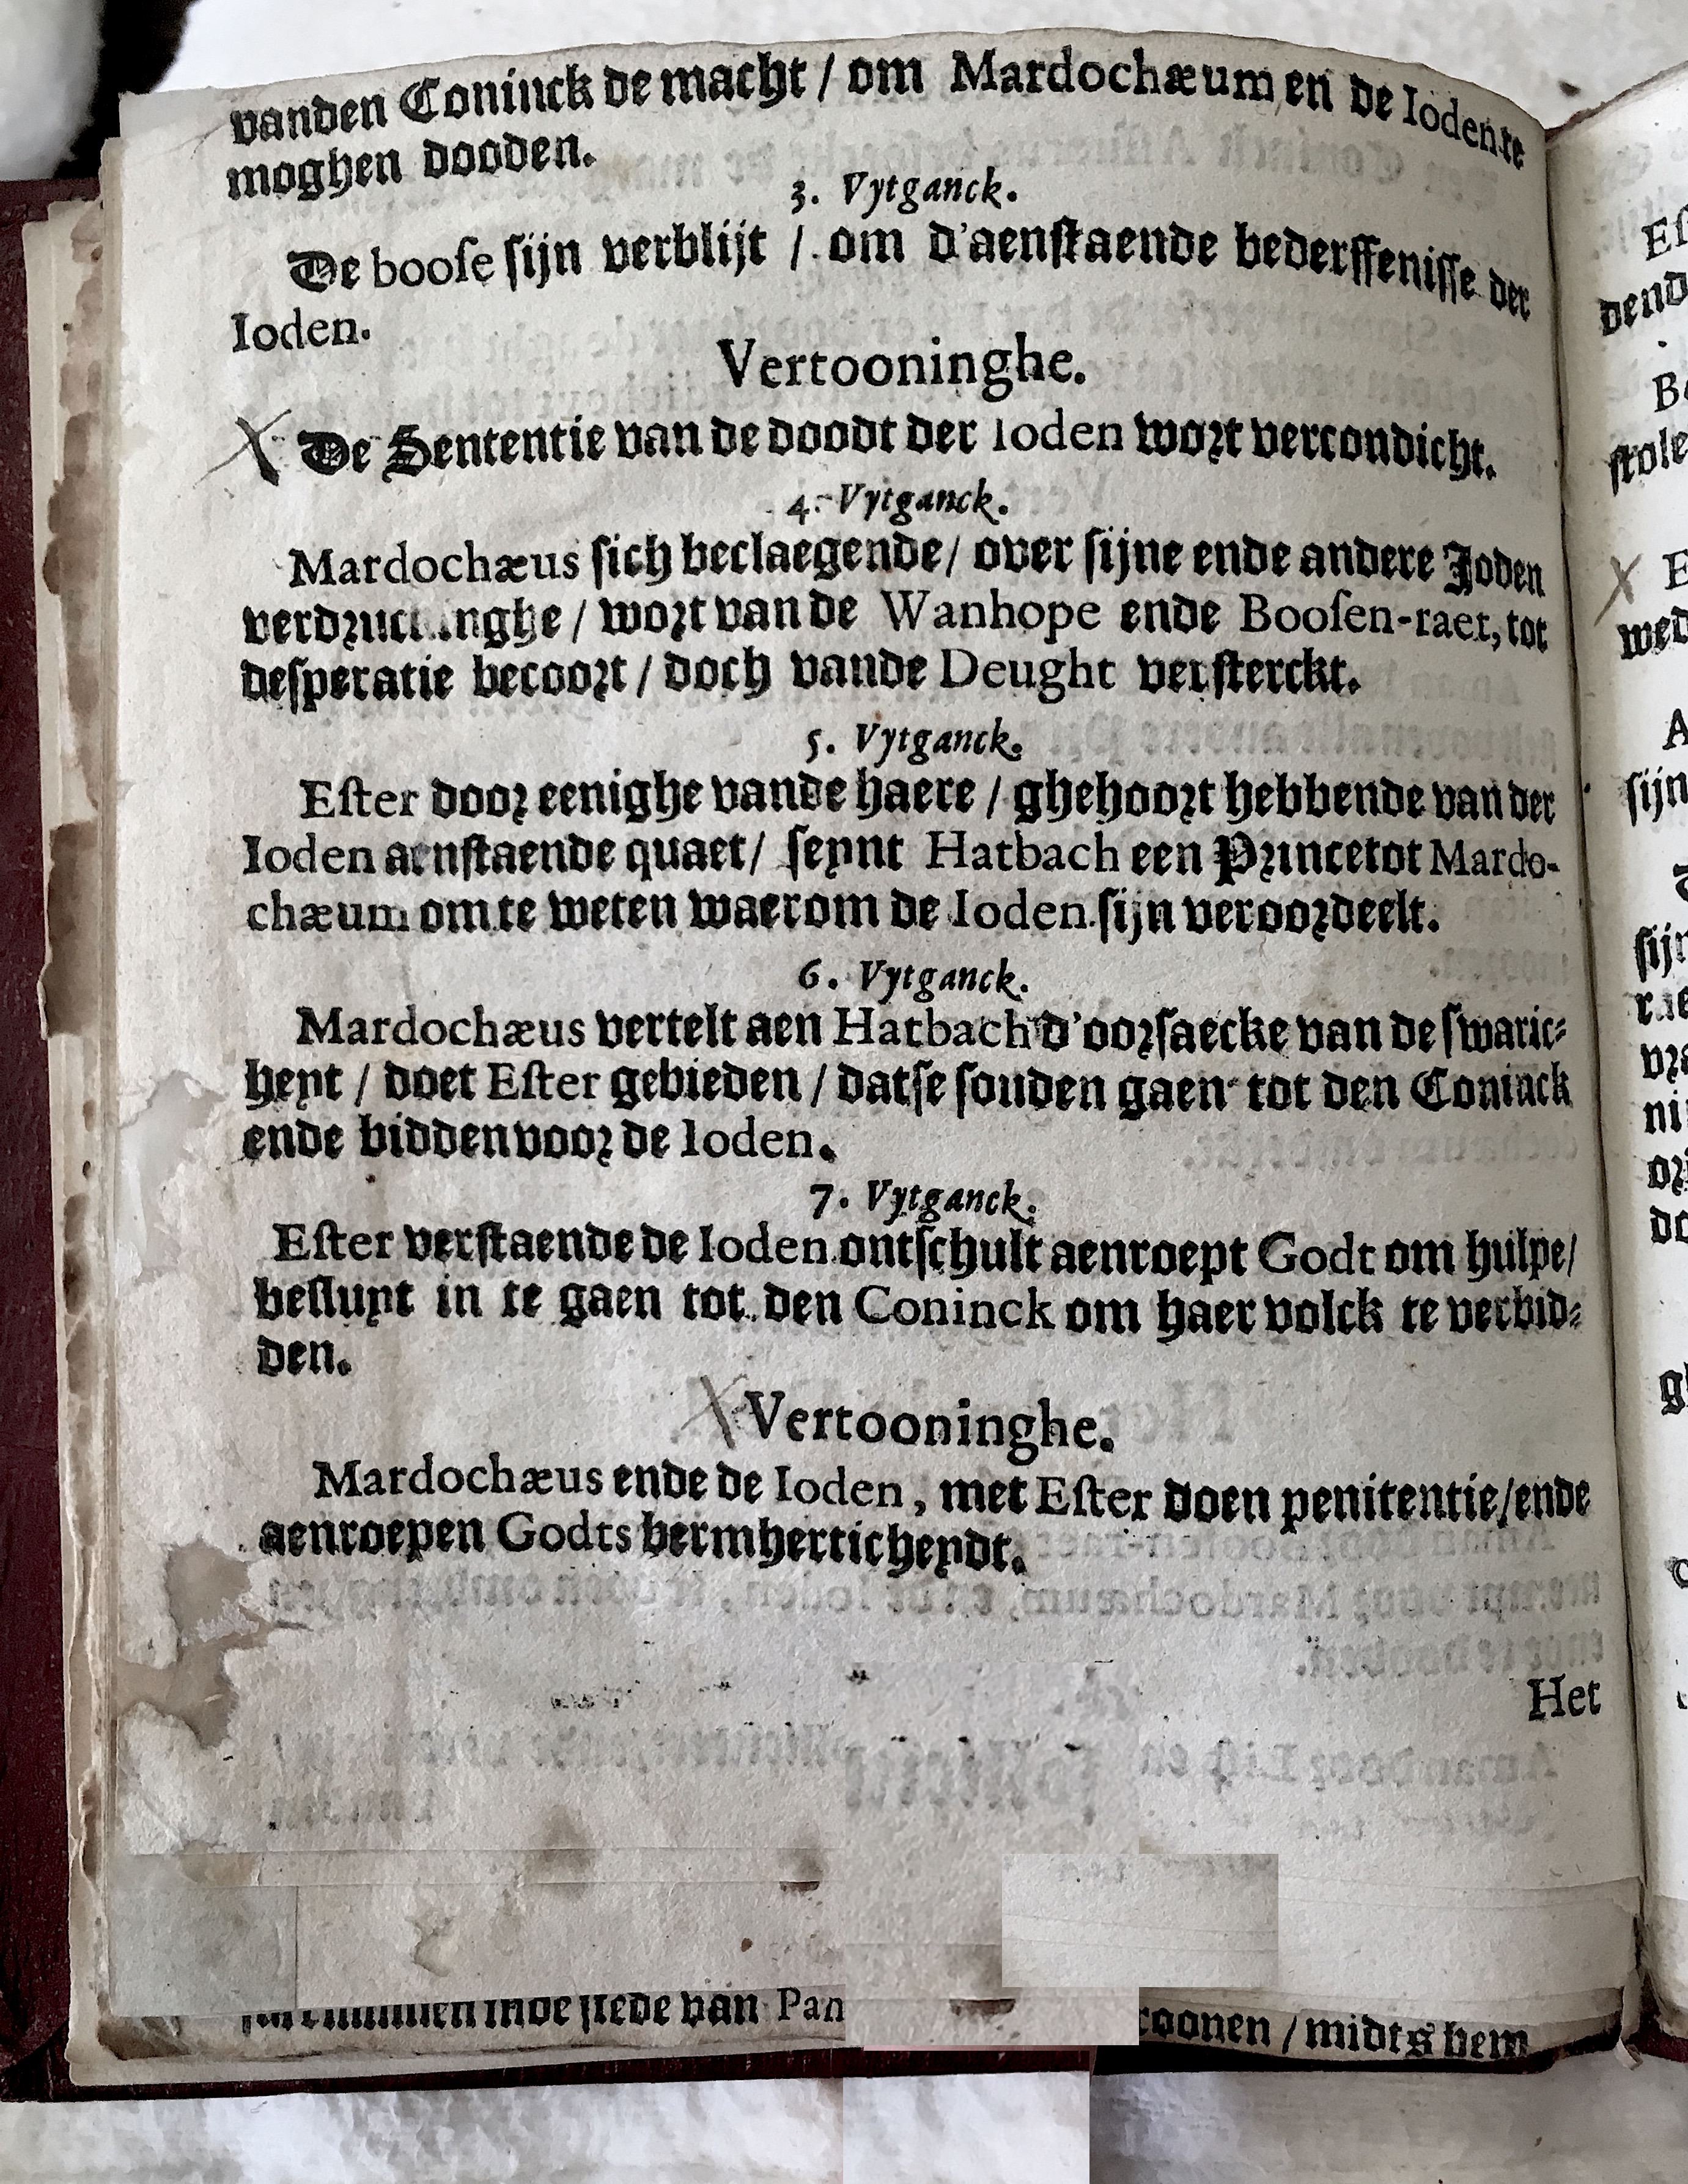 vanden Coninck de macht / om Mardochæum en de Ioden te
moghen dooden.
3. Vytganck.
De boose sijn verblijt / om d'aenstaende bederffenisse der
Ioden.
Vertooninghe.
X De Sententie van de doodt der Ioden wort vercondicht.
4. Vytganck.
Mardochæus sich beclaegende / over sijne ende andere Joden
/ wort van de Wanhope ende Boosen-raet, tot
desperatie becoort / doch vande Deught versterckt.
5. Vytganck.
Ester door eenighe vande haere / ghehoort hebbende van der
Ioden aenstaende quaet / seynt Hatbach een Prince tot Mardo-
chæum om te weten waerom de Ioden sijn veroordeelt.
6. Vytganck.
Mardochæus vertelt aen Hatbach d'oorsaecke van de swaric-
heyt / doet Ester gebieden / datse souden gaen tot den Coninck
ende bidden voor de Ioden.
7. Vytganck.
Ester verstaende de Ioden ontschult aenroept Godt om hulpe /
besluyt in te gaen tot den Coninck om haer volck te verbid-
den.
X Vertooninghe.
Mardochæus ende de Ioden, met Ester doen penitentie / ende
aenroepen Godts bermherticheydt.
Het
inde stede van Pan
toonen / midts hem